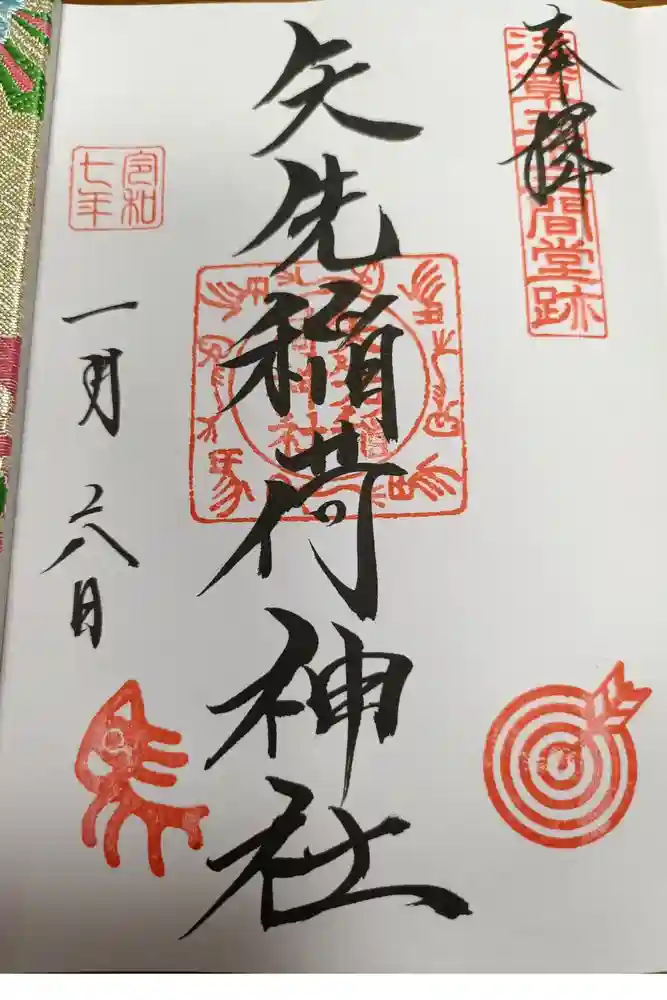 奉拝
浅草三十三間堂跡
矢先稲荷神社
令和
七年
一月二八日